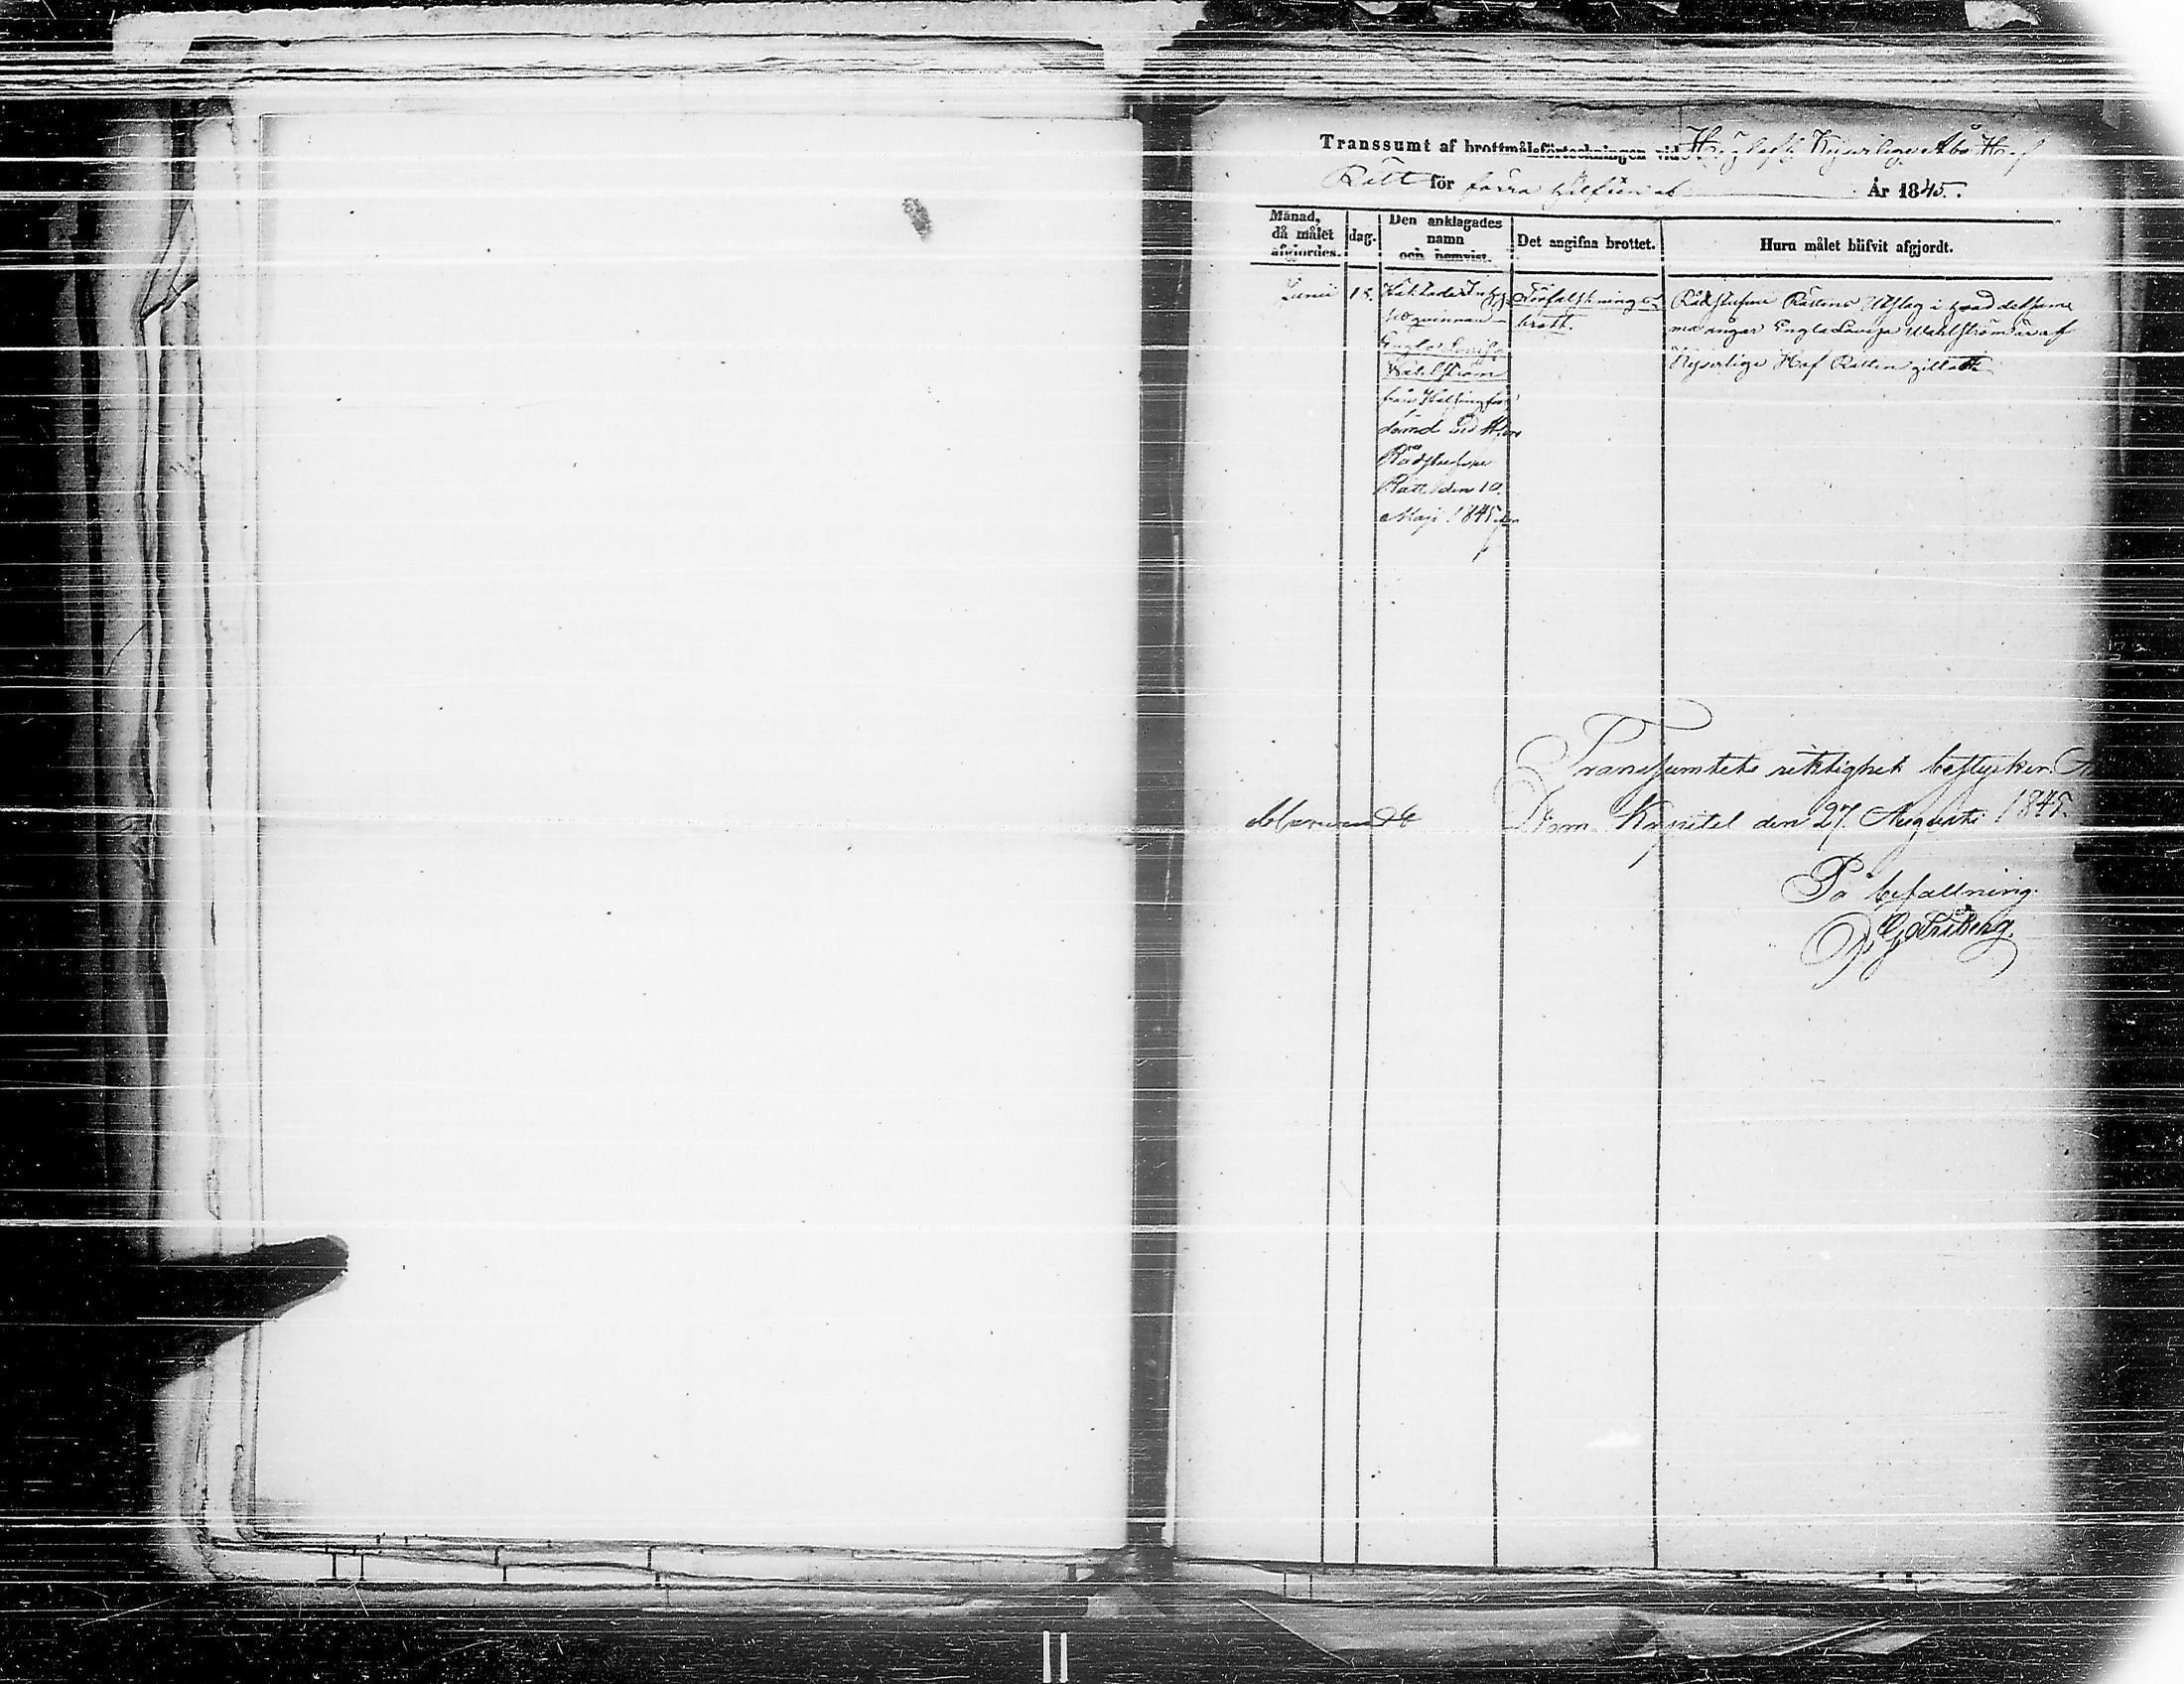 Transsumt af brottmålsförteckningen vid Höglofl. Kejserlige Åbo Hof
Rätt för förra hälften af År 1845.
Månad, då målet afgjordes.
dag.
Den anklagades namn och hemvist.
Det angifna brottet.
Huru målet blifvit afgjordt.
Junii
18.
Häktade
qvinnan
Engla Lovisa
Wahlström
från Helsingfors
dömd vid
Rådstufvu
Rätt den 10
Maji 1845
Förfalsknings
brott.
Rådstufvu Rättens Utslag i hvad detsamma
angår Engla Lovisa Wahlström är af
Kejserlige Hof Rätten gilladt.
Transsumtets riktighet bestyrker.
Dom Kapitel den 27 Augusti 1845.
På befallning.